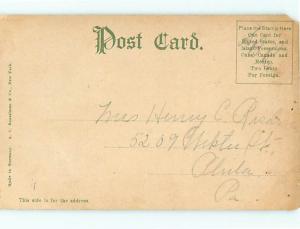 Post Card.
Place the Stamp Here
One Cent for
United States, and
Island Possessions,
Cuba, Canada and
Mexico.
Two Cents
For Foreign.
Mrs Henry C.
5209
Phila.
Pa
This side is for the address.
Made in Germany.
Co., New York.